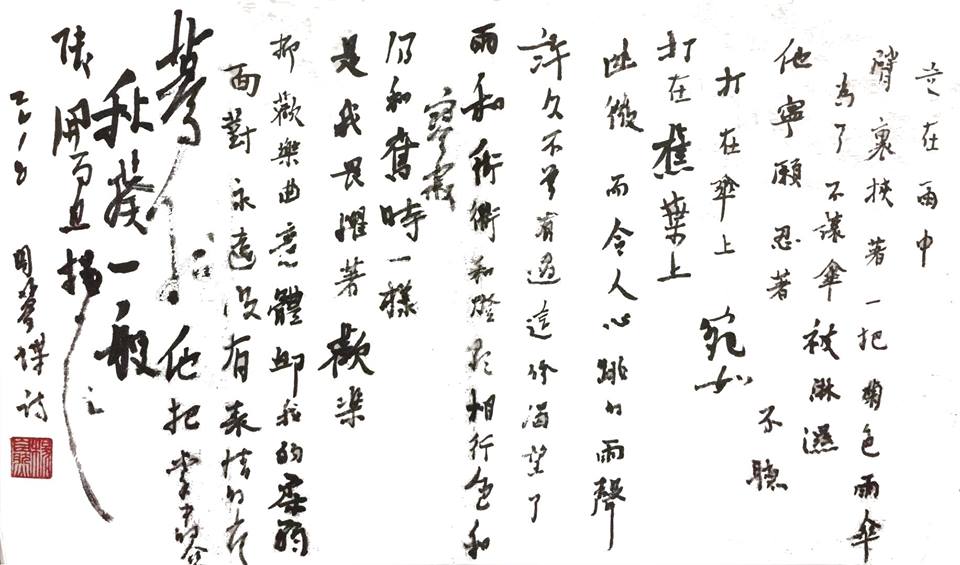 走在雨中
臂裏挾著一把菊色雨傘
為了不讓傘被淋濕
他寧願忍著 不聽
打在傘上 宛如
打在蕉葉上
微而令人心跳的雨聲
許久不曾有過這份渴望了
雨和街衢和燈影相行色和
仍和舊時一樣
是我畏懼著歡樂
抑歡樂曲意體卹我的柔弱
面對永遠沒有表情的
他把掌
秋葵一般
開而且揚之
周夢蝶詩